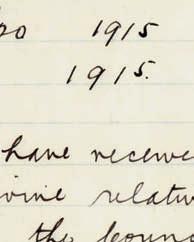 1915
1915.
have receive
relativ
the boun